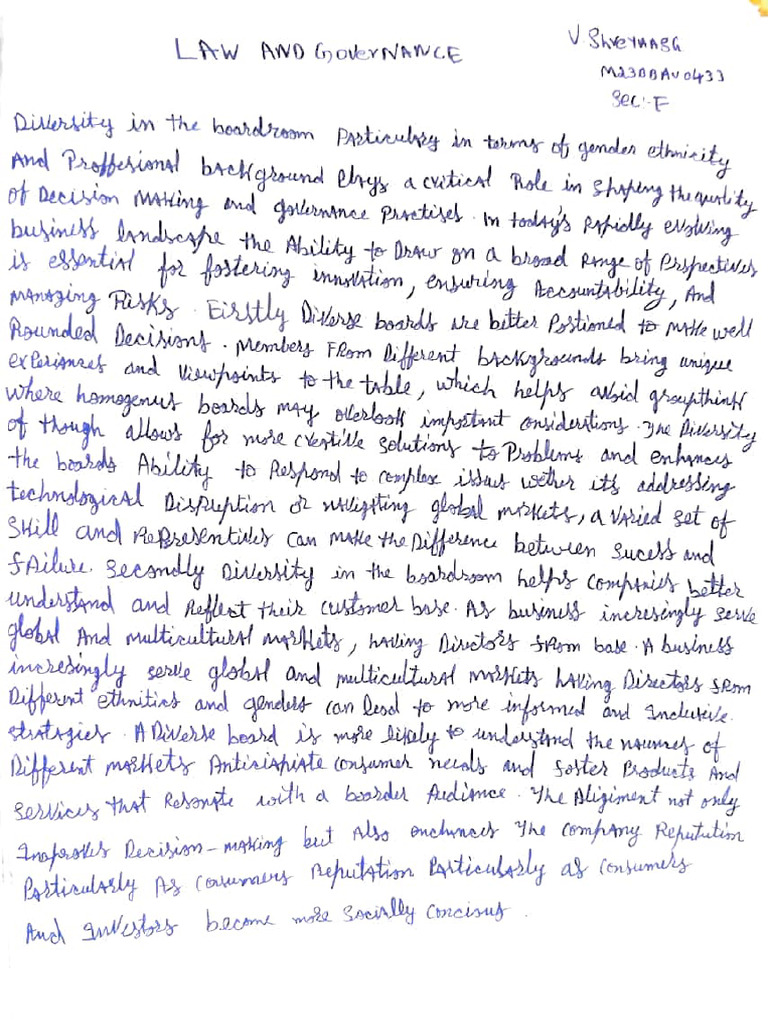 LAW AND GOVERNANCE
V. Shreyaas G
M23BBAV0433
Sec:- F
Diversity in the boardroom Particulary in terms of gender ethnicity
And Proffesional background Plays a critical Role in Shaping the quality
of Decision Making and governance Practises. In today's Rapidly evolving
business landscape the Ability to Draw on a broad Range of Prespectives
is essential for fostering innovation, ensuring Accountability, And
Managing Risks. Firstly Diverse boards are better Postioned to make well
Rounded Decisions. Members From Different backgrounds bring unique
experiances and viewpoints to the table, which helps avoid groupthink
where homogenus boards may overlook important considerations. The Diversity
of though allows for more creative solutions to Problems and enhances
the boards Ability to Respond to complex issues wether its addressing
technological Disruption or navigating global markets, a varied set of
Skill and Representives can make the Difference between sucess and
failure. Secondly Diversity in the boardroom helps companies better
understand and Reflect their customer base. As business incresingly serve
global And multicultural markets, having Directors from base. A business
incresingly serve global and multicultural markets having Directors from
Different ethnities and genders can lead to more informed and Inclusive.
Stratagies. A Diverse board is more likely to understand the of
Different markets Anticiapiate consumer needs and foster Products And
Services that Resonate with a boarder Audiance. The Aligiment not only
Inoproves Decision-making but Also enchances The company Reputution
Particularly As Consumers Reputation Particularly as consumers
And Investors become more Socially Concious.